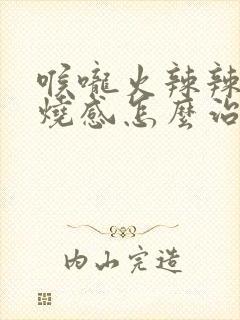 喉嚨火辣辣
燒感怎麼治
內山完造